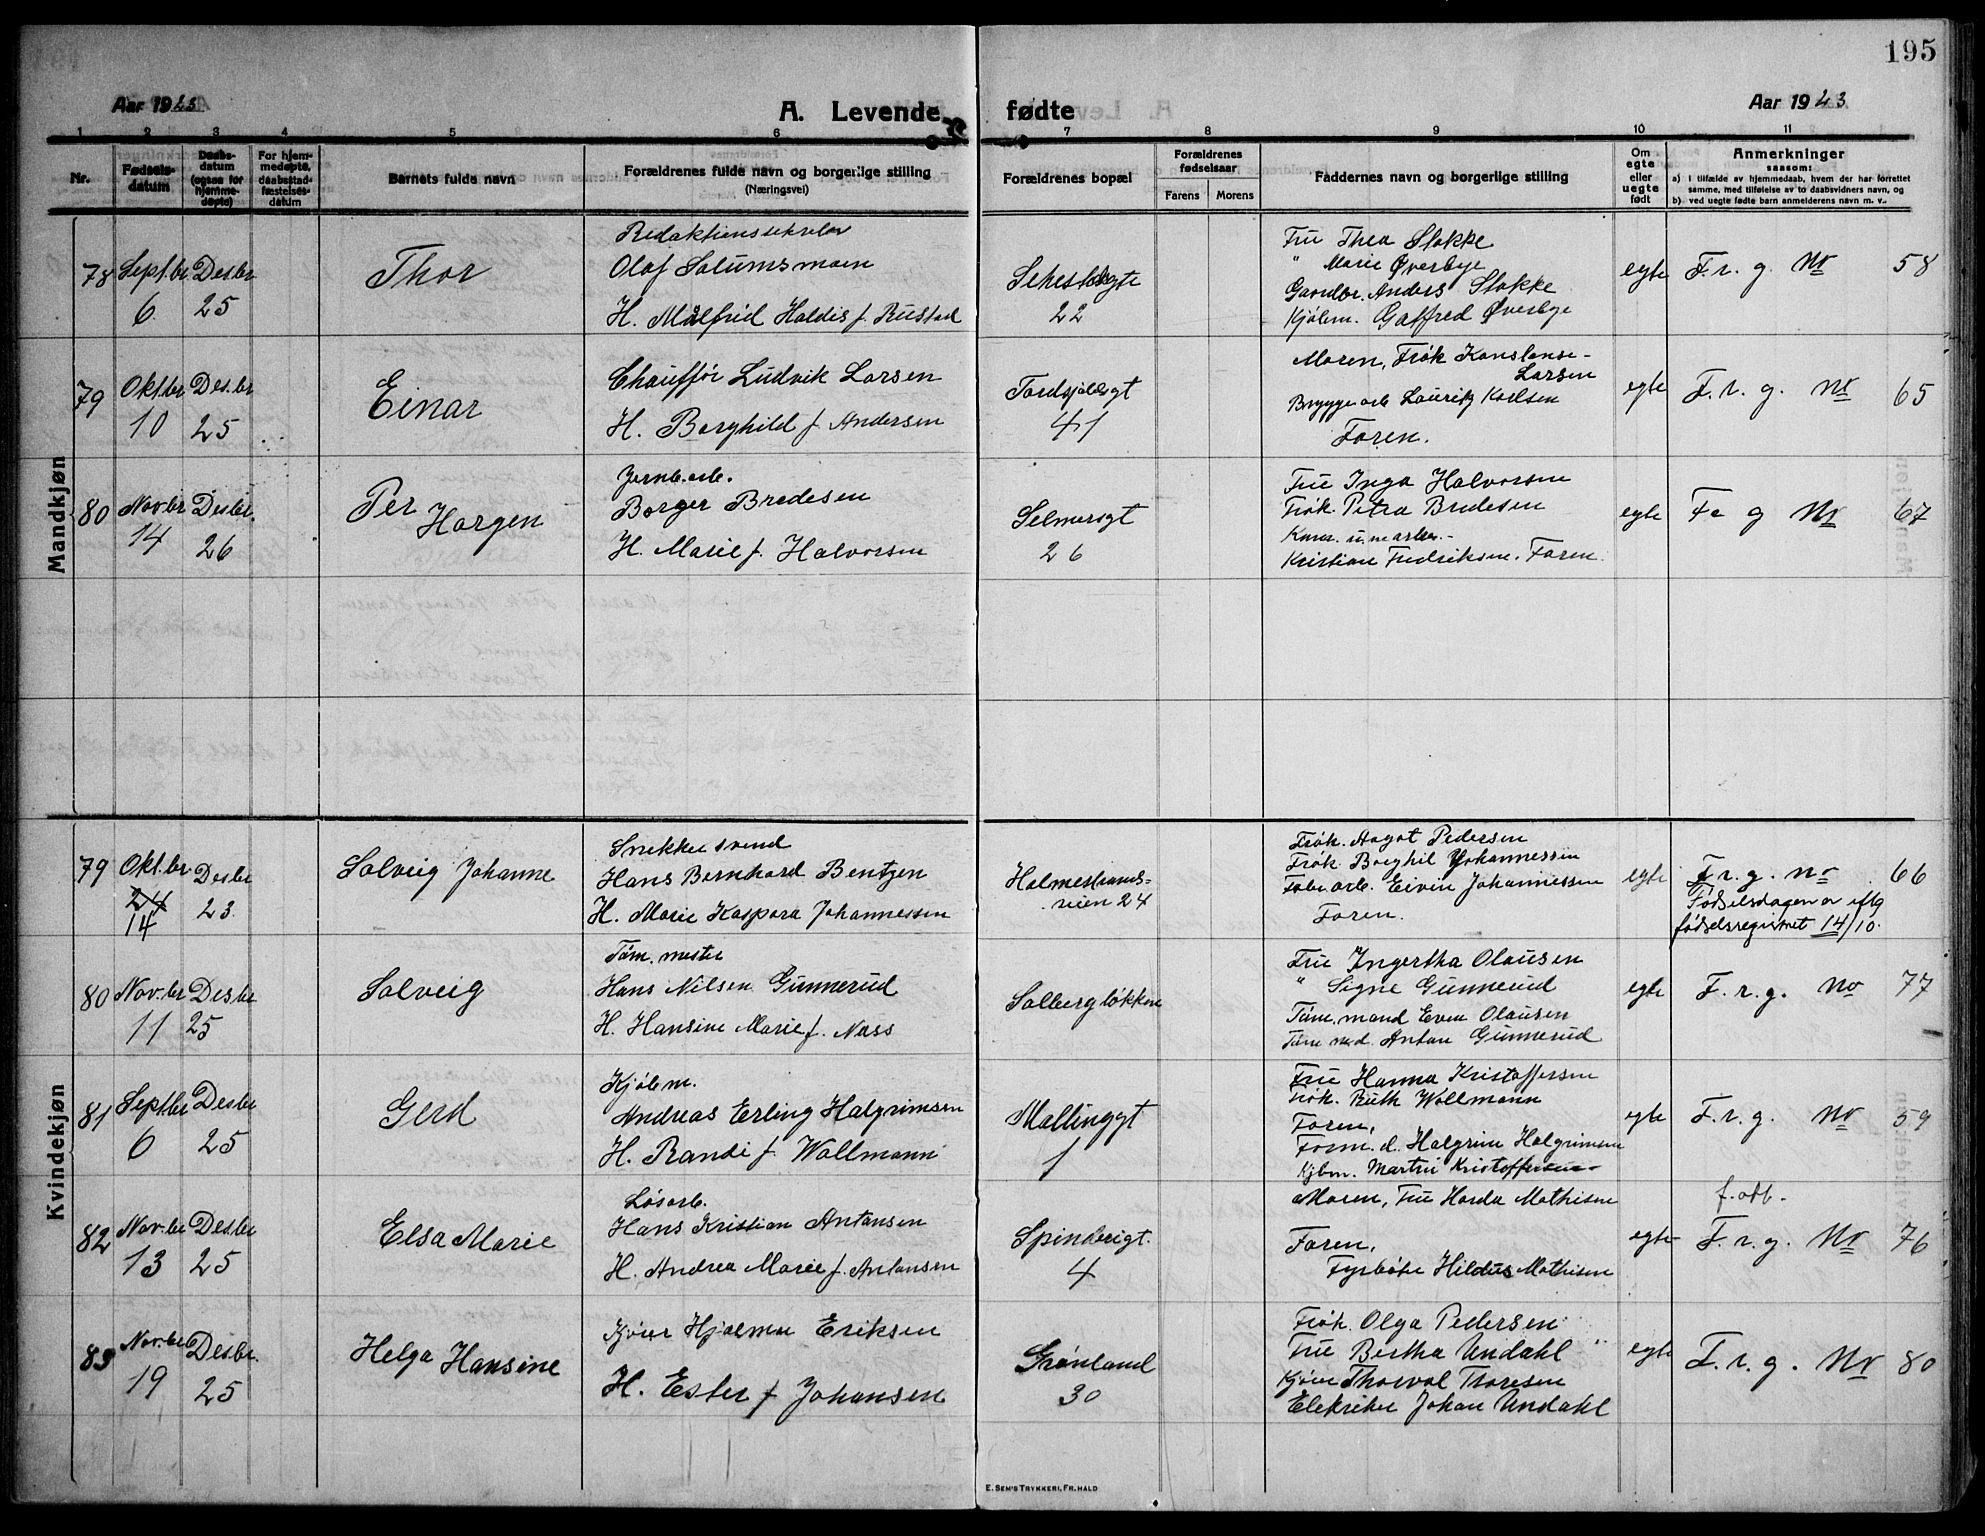 195
Aar 1923
A. Levende fødte
Aar 1923
1 2 3 4 5 6 7 8 9 10 11
Nr.
Fødselsdatum
Daabsdatum (ogsaa for hjemmedøpte)
For hjemmedøpte, daabsstadfæstelsesdatum
Barnets fulde navn
Forældrenes fulde navn og borgerlige stilling
(Næringsvei)
Forældrenes bopæl
Forældrenes fødselsaar
Farens Morens
Faddernes navn og borgerlige stilling
Om egte eller uegte født
Anmerkninger
saasom:
a) I tilfælde av hjemmedaab, hvem der har forrettet samme, med tilføielse av to daabsvidners navn, og
b) ved uegte fødte barn anmelderens navn m. v..
Mandkjøn
78 Septbr 6 Desbr 25
Thor
Redaktionssekretær
Olaf Solumsmoen
H. Målfrid Haldis f. Rustad
22
Fru Thea Stokke
" Marie Øverbye
Gaardbr. Anders Stokke
Kjølem. Gatfred Øverbye
egte
F. r. g. No 58
79 Oktbr 10 Desbr 25
Einar
Chauffør Ludvik Larsen
H. Borghild f. Andersen
41
Moren, Frøk Konstanse Larsen
Bryggearb Lauritz Karlsen
Faren.
egte
F. r. g. No 65
80 Novbr 14 Desbr. 26
Per Horgen
Jernb.arb.
Borger Bredesen
H. Marie f. Halvorsen
Selmersgt
26
Fru Inga Halvorsen
Frøk. Petra Bredesen
Kristian Fredriksen. Faren.
egte
F. g No 67
Kvindekjøn
79 Oktbr. 24 14 Desbr 23.
Solveig Johanne
Snekkersvend
Hans Bernhard Bentzen
H. Marie Kaspara Johannessen
Holmestrands-
veien 24
Frøk. Aagot Pedersen
Frøk. Borghil Johannessen
Fabr arb. Eivin Johannessen
Faren.
egte
F. r. g. no 66
Fødselsdagen er iflg
fødselsregistret 14/10.
80 Novbr 11 Desbr 25
Solveig
Tøm. mester
Hans Nilsen Gunnerud
H. Hansine Marie f. Nass
Solbergløkken
Fru Ingertha Olausen
" Signe Gunnerud
Tøm. mand Even Olausen
Tøm md. Anton Gunnerud
egte
F. r. g. No 77
81 Septbr 6 Desbr 25
Gerd
Kjølem.
Andreas Erling Halgrimsen
H. Randi f. Wollmann
Mallinggt
1
Fru Hanna Kristoffersen
Frøk. Ruth Wollmann
Faren,
Form. d. Halgrim Halgrimsen
Kjbm. Martin Kristoffersen
egte
F. r. g. No 59
82 Novbr 13 Desbr 25
Elsa Marie
Løsarb.
Hans Kristian Antonsen
H. Andrea Marie f. Antonsen
Spinderigt.
4
Moren, Fru Horda Mathisen
Faren,
Fyrbøter Hildus Mathisen
egte
f. att.
F. r. g. No 76
83 Novbr 19 Desbr. 25
Helga Hansine
Kjører Hjalmar Eriksen
H. Ester f. Johansen
Grønland
30
Frøk. Olga Pedersen
Fru Bertha Undahl
Kjører Thorval Thoresen
Elektriker Johan Undahl
egte
F. r. g. No 80
E. SEM'S TRYKKERI, FR.HALD